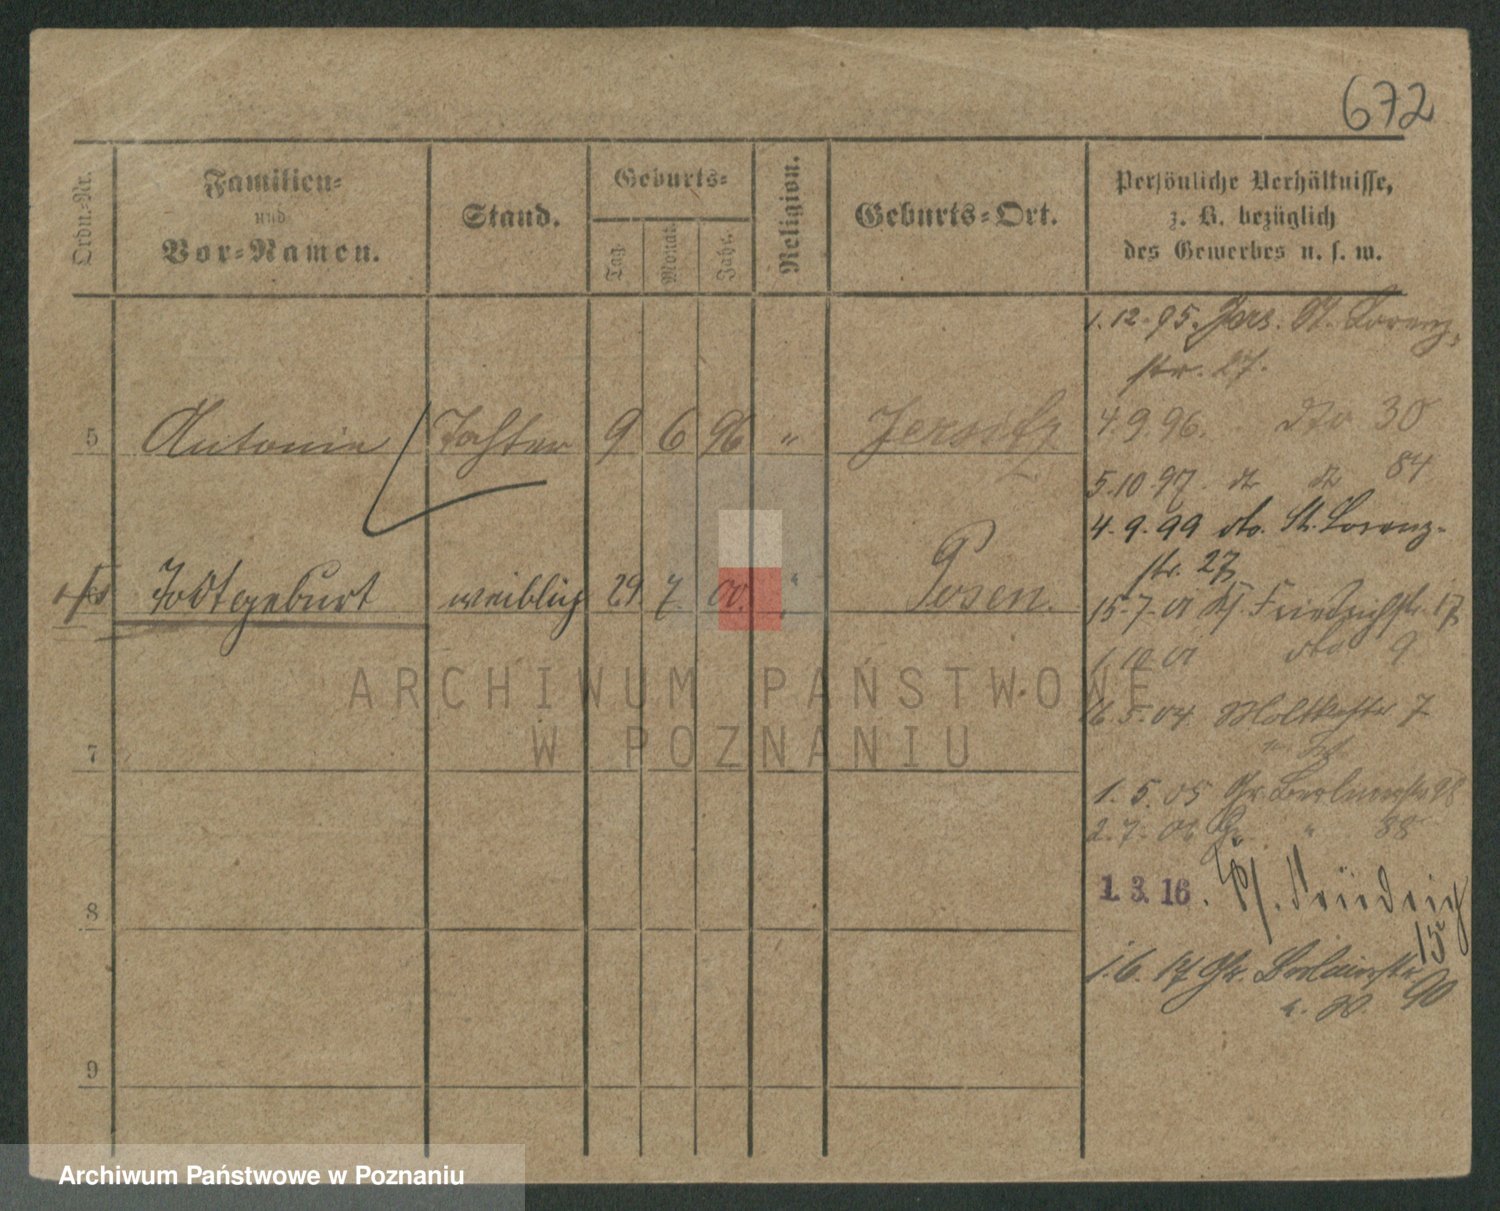 672
Ordn.-Nr.
Familien-
und
Vor-Namen.
Stand.
Geburts-
Tag.
Monat.
Jahr.
Religion.
Geburts-Ort.
Persönliche Verhältnisse,
z. B. bezüglich
des Gewerbes u. s. w.
1.12.95. Jers. St. Lorenz-
str. 27.
5 Antonie Tochter 9 6 96 " Jersitz
4.9.96. dto 30
5.10.97. 84
4.9.99 dto. St. Lorenz-
str. 27
6 Todtgeburt weiblich 29. 7. 00. " Posen.
15.7.01 Friedrichstr. 17
1.10.01 dto 9
16.5.04. Moltkestr 7
7
1.5.05 Gr. Berlinerstr 98
2.7.06 Gr. " 88
8
1.3.16. Friedrich
15
1.6.17 Gr. Berlinerstr.
90
9
ARCHIWUM PAŃSTWOWE
W POZNANIU
Archiwum Państwowe w Poznaniu